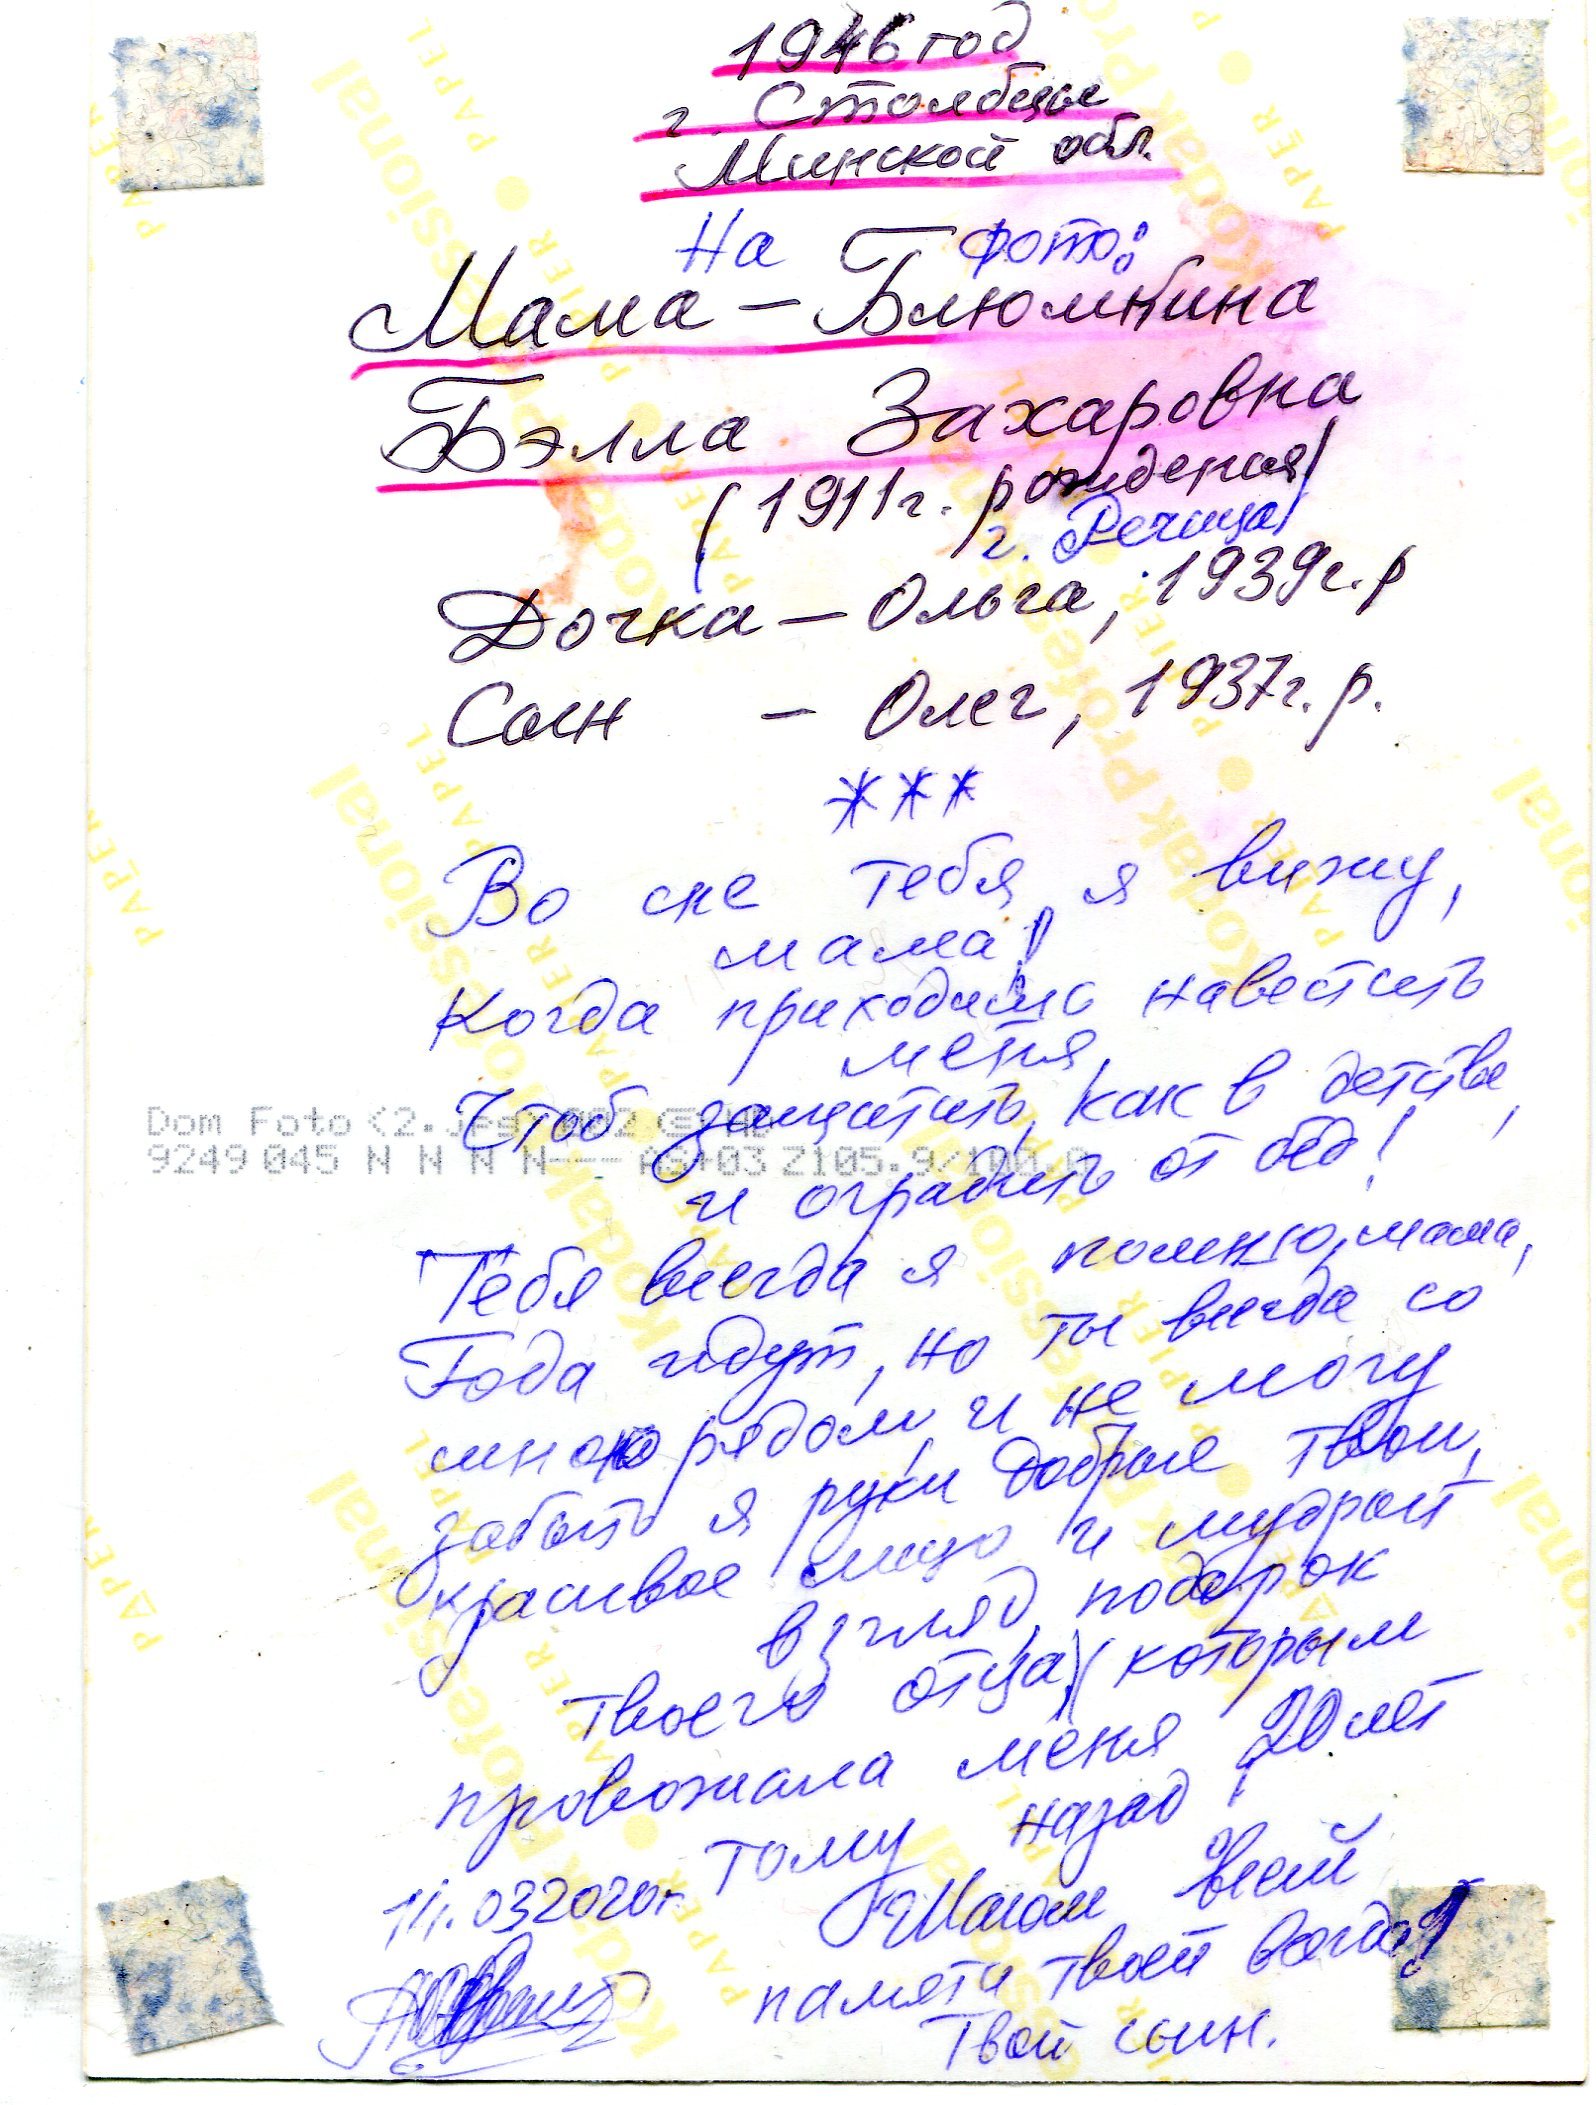 1946 год
г. Столбцы
Минской обл.
На фото:
Мама – Блюмкина
Бэлла Захаровна
(1911г. рождения)
г. Речица)
Дочка – Ольга, 1939г.р
Сын – Олег, 1937г.р.
***
Во сне тебя я вижу,
мама!
Когда приходишь навестить
меня,
Чтоб защитить, как в детстве,
и оградить от бед!
Тебя всегда я помню, мама,
Года идут, но ты всегда со
мною рядом, и не могу
забыть я руки добрые твои,
красивое лицо и мудрый
взгляд, подарок
твоего отца, которым
провожала меня 20 лет
тому назад!
всей
памяти твоей всегда!
Твой сын.
14.03 2020г.
Dom Foto <2.
9249 045 N N N N---
Kodak Professional
PAPER
PAPIER
PAPEL